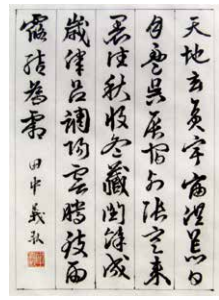 天地玄黃宇宙洪荒日
月盈昃辰宿列張寒來
暑往秋收冬藏閏餘成
歲律呂調陽雲騰致雨
露結為霜
田中義